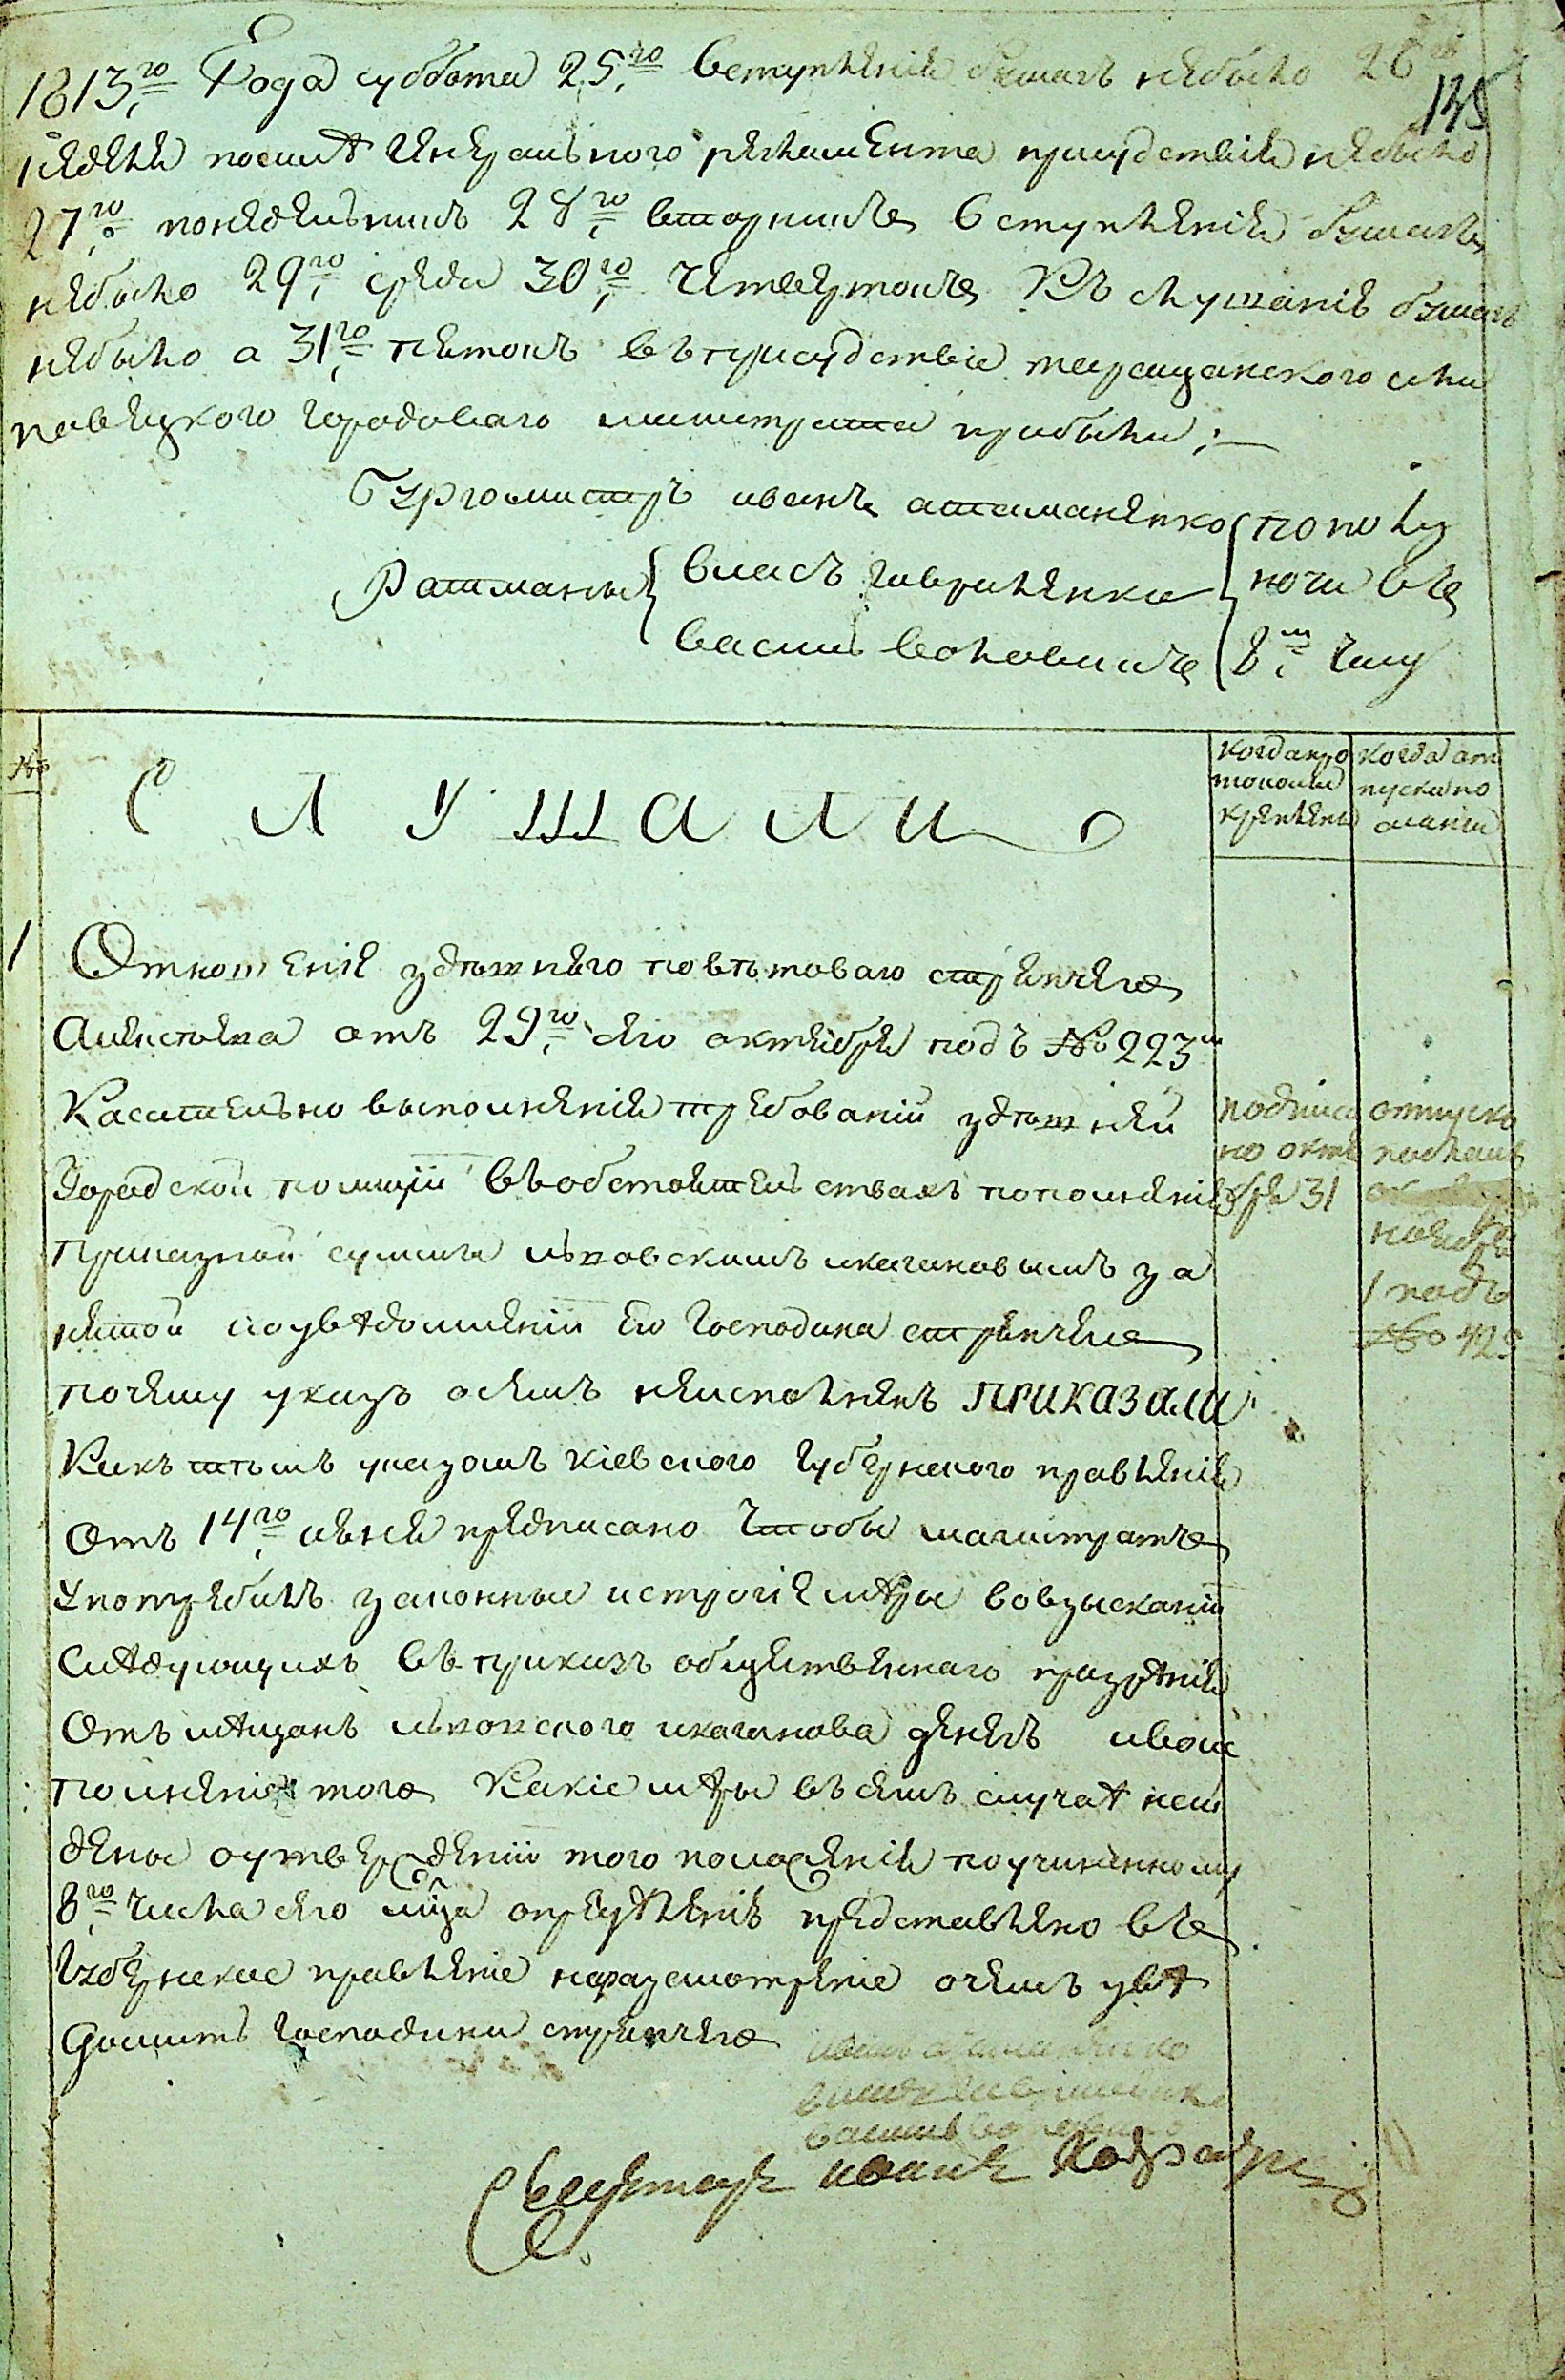 1813,го Года суббота 25,го вступленія бумагъ небыло 26го
135
недѣля посилѣ Генеральнаго регламента присудствія небыло
27,го понедельникъ 28,го вторникъ вступленія бумагъ
небыло 29,го среда 30,го четвертокъ Къ слушанію бумагъ
небыло а 31,го пятокъ въ присудствіе таращанского
городоваго магистрата прибыли;
Бургомистръ иванъ атаманенко
Ратманы власъ гавриленко
василь
пополу
ночи въ
8,м часу
№
СЛУШАЛИ
когда про
токолы
креплены
когда от
пуски по
сланы
1
Отношеніе здѣшнего повѣтоваго стряпчего
отъ 29,го сего октября подъ № 223м
Касательно выполненія требованій здѣшней
Городской полиціи въ обстоятельствахъ пополненія
Приказной суммы икагановымъ за
нятой иоувѣдомленіи Его Господина стряпчего
почему указъ осемъ неисполненъ ПРИКАЗАЛИ
Какъ указомъ кіевского губернского правленія
Отъ 14,го предписано чтобы магистратъ
употребилъ законные истрогіе мѣры вовзысканіи
Слѣдующихъ въ приказъ общественнаго призрѣнія
Отъ мѣщанъ икаганова денегъ
полненіе того Какіе мѣры въ семъ случаѣ най
дены оутвержденіи того положенія поучиненному
8,го числа сего мца опредѣленію представлено въ
Губернское правленіе наразсмотреніе очемъ увѣ
домить господина стряпчего
подписа
но октя
бря 31
отпускъ
посланъ
ноября
1 подъ
№
иванъ атаманенко
власъ гавриленко
василь
Секретарь иванъ